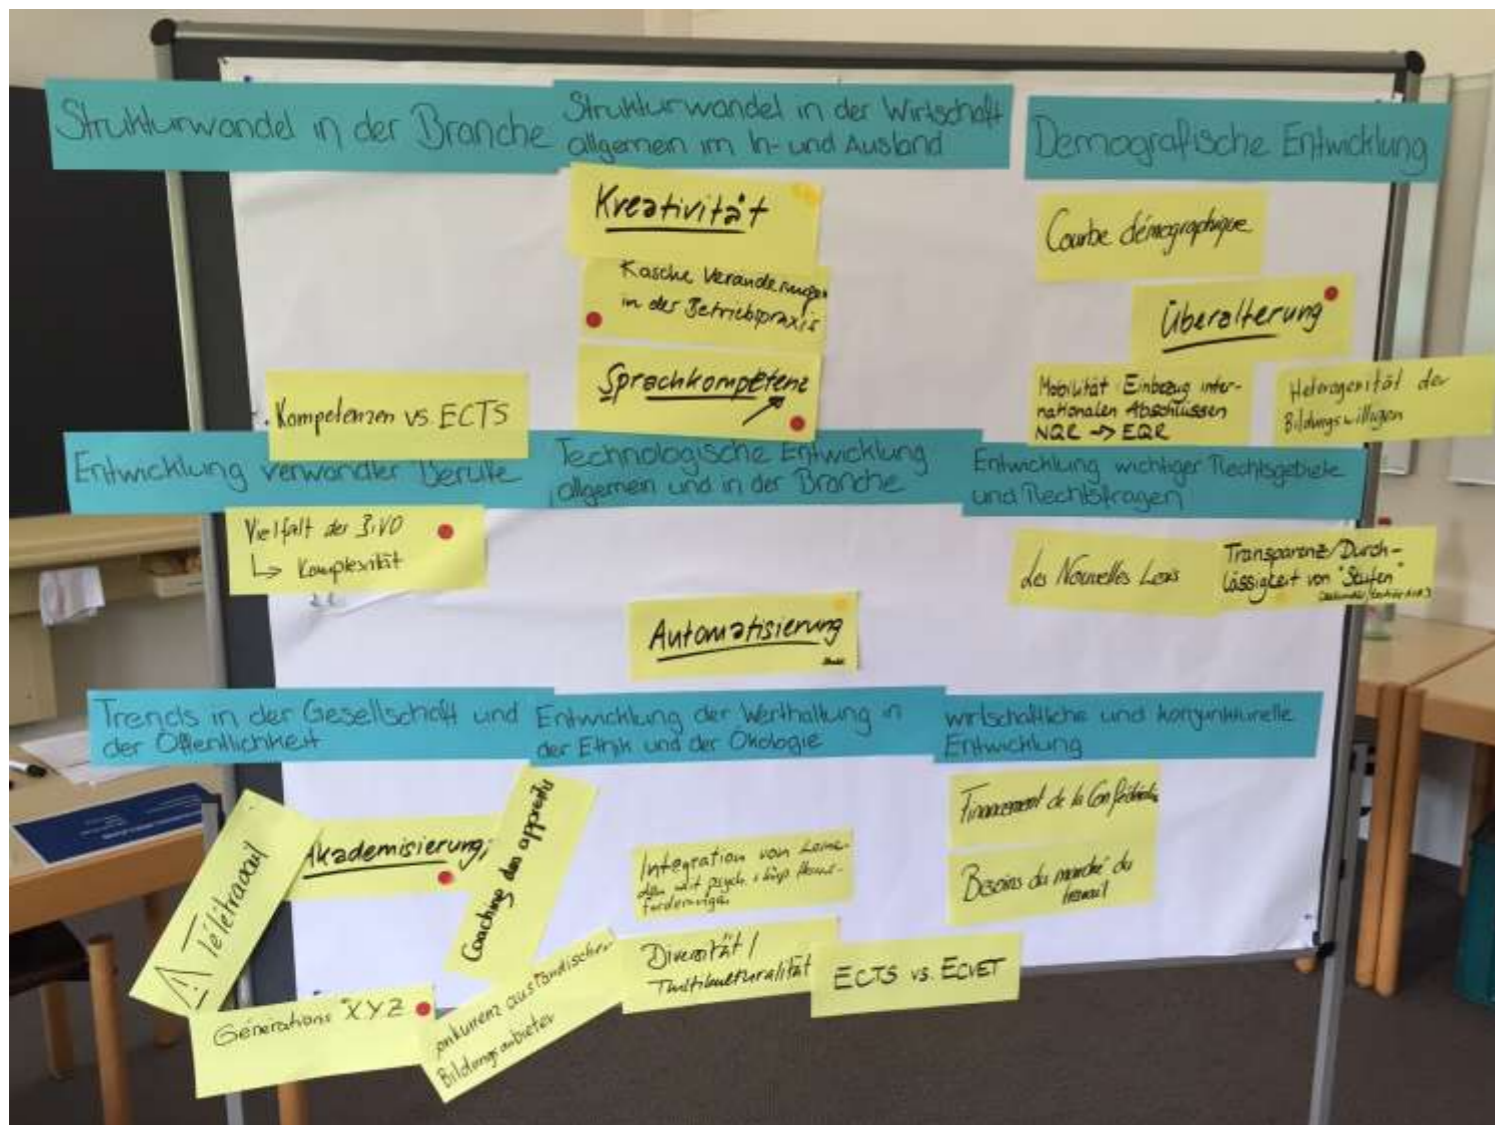 Strukturwandel in der Branche
Strukturwandel in der Wirtschaft
allgemein im In- und Ausland
Demografische Entwicklung
Kreativität
Rasche Veränderungen
in der Betriebspraxis
Sprachkompetenz
Courbe démographique
Überalterung
Mobilität Einbezug inter-
nationalen Abschlüssen
NQR -> EQR
Heterogenität der
Bildungswilligen
Kompetenzen vs ECTS
Entwicklung verwandter Berufe
Technologische Entwicklung
allgemein und in der Branche
Entwicklung wichtiger Rechtsgebiete
und Rechtsfragen
Vielfalt der BiVO
↳ Komplexität
Automatisierung
Les Nouvelles Lois
Transparenz/Durch-
lässigkeit von "Stufen"
Trends in der Gesellschaft und
der Öffentlichkeit
Entwicklung der Werthaltung in
der Ethik und der Ökologie
wirtschaftliche und konjunkturelle
Entwicklung
⚠ Télétravail
Akademisierung
Coaching des apprentis
Générations XYZ
onkurrenz ausländischer
Bildungsanbieter
Integration von Lernen-
den mit psych. +
forderungen
Diversität /
Multikulturalität
Financement de la Confédération
Besoins du marché du
travail
ECTS vs. ECVET